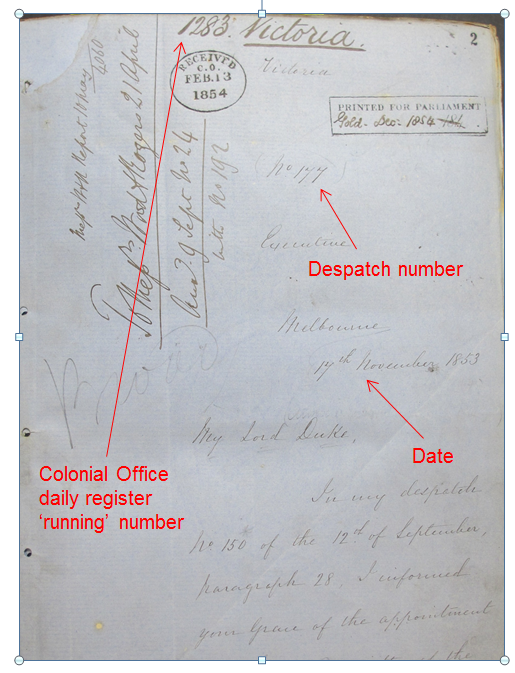 1283. Victoria.
2
Victoria
RECEIVED
C.O.
FEB. 13
1854
PRINTED FOR PARLIAMENT
Gold. Dec. 1854
No 177
Despatch number
Executive
Melbourne
17th November 1853
Date
My Lord Duke,
In my despatch
No 150 of the 12th of September,
paragraph 28, I informed
your Grace of the appointment
of the
Colonial Office
daily register
‘running’ number
4060
To Messrs Wood & Rogers 21 April
Ansd 9 Sept No 24
with No 192